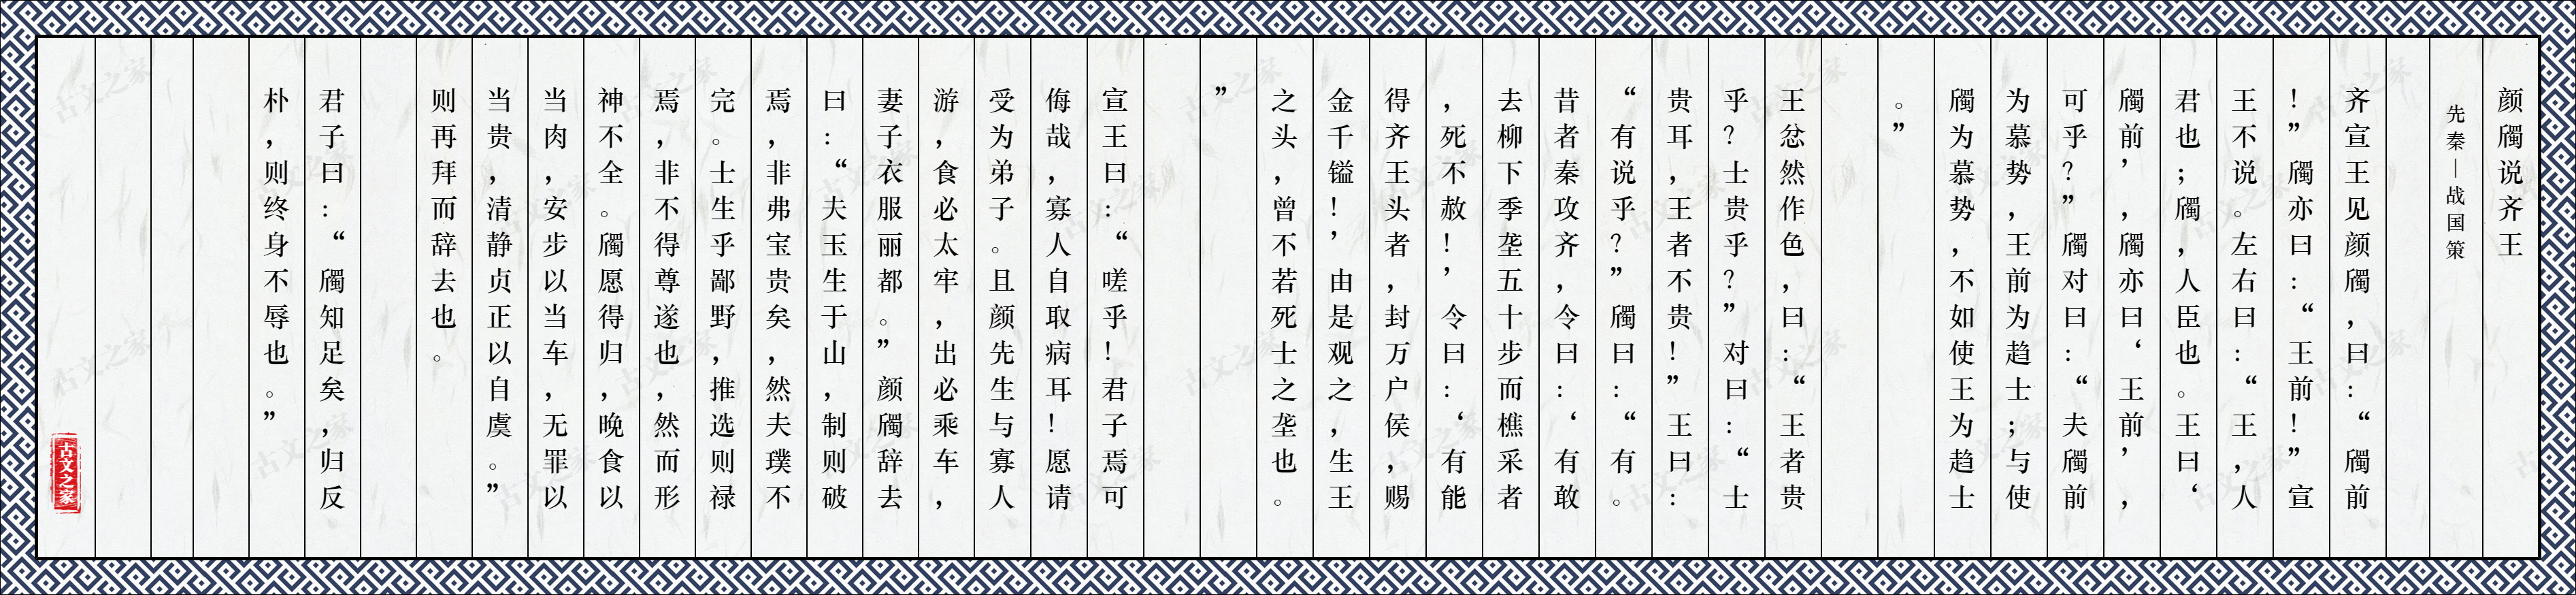 颜斶说齐王
先秦—战国策
齐宣王见颜斶，曰：“斶前
！”斶亦曰：“王前！”宣
王不说。左右曰：“王，人
君也；斶，人臣也。王曰‘
斶前’，斶亦曰‘王前’，
可乎？”斶对曰：“夫斶前
为慕势，王前为趋士；与使
斶为慕势，不如使王为趋士
。”
王忿然作色，曰：“王者贵
乎？士贵乎？”对曰：“士
贵耳，王者不贵！”王曰：
“有说乎？”斶曰：“有。
昔者秦攻齐，令曰：‘有敢
去柳下季垄五十步而樵采者
，死不赦！’令曰：‘有能
得齐王头者，封万户侯，赐
金千镒！’由是观之，生王
之头，曾不若死士之垄也。
”
宣王曰：“嗟乎！君子焉可
侮哉，寡人自取病耳！愿请
受为弟子。且颜先生与寡人
游，食必太牢，出必乘车，
妻子衣服丽都。”颜斶辞去
曰：“夫玉生于山，制则破
焉，非弗宝贵矣，然夫璞不
完。士生乎鄙野，推选则禄
焉，非不得尊遂也，然而形
神不全。斶愿得归，晚食以
当肉，安步以当车，无罪以
当贵，清静贞正以自虞。”
则再拜而辞去也。
君子曰：“斶知足矣，归反
朴，则终身不辱也。”
古文之家